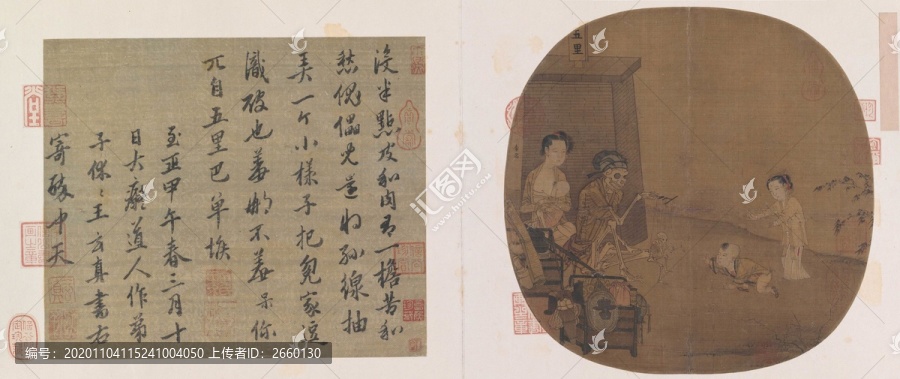 没半點皮和肉有一擔苦和
愁傀儡兒還將絲線抽
弄一个小樣子把冤家逗
識破也羞那不羞呆你
兀自五里巴单堠
至正甲午春三月十
日大癡道人作弟
子休休王玄真書右
寄醉中天
五里
编号:20201104115241004050 上传者ID:2660130